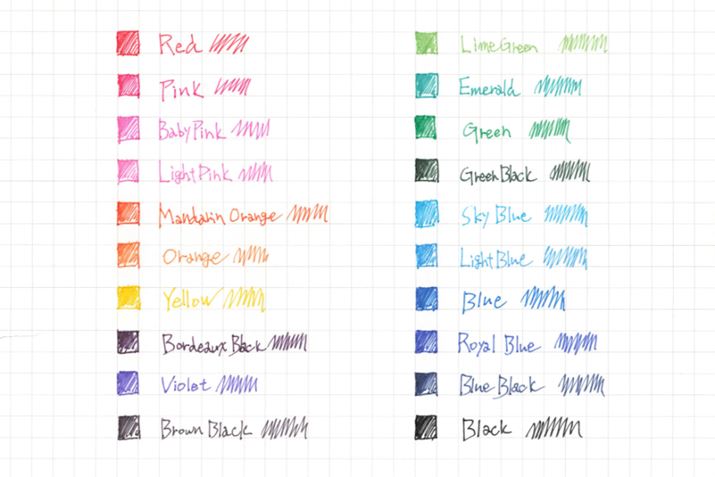 Red
Pink
BabyPink
LightPink
Mandarin Orange
Orange
Yellow
Bordeaux Black
Violet
Brown Black
LimeGreen
Emerald
Green
GreenBlack
Sky Blue
LightBlue
Blue
Royal Blue
Blue Black
Black